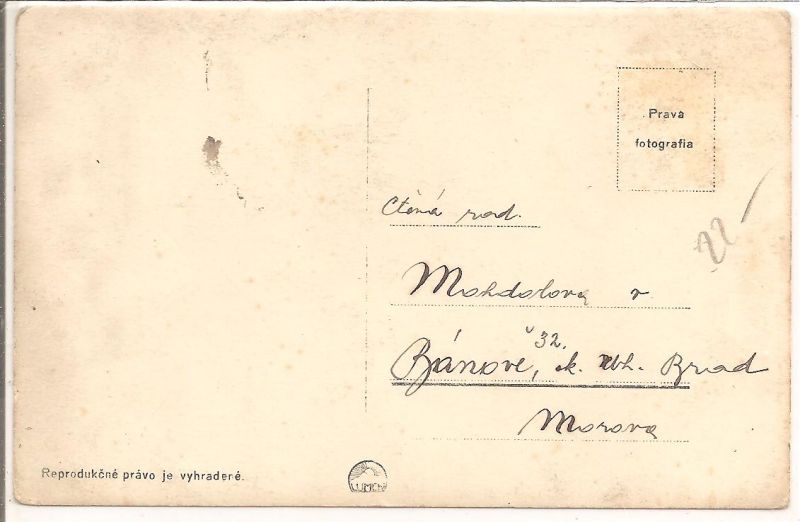 Pravá
fotografia
Ctěná rod.
Mohdalova v
Bánově, č 32. ok. Uh. Brod
Morava
22
Reprodukčné právo je vyhradené.
LUMEN